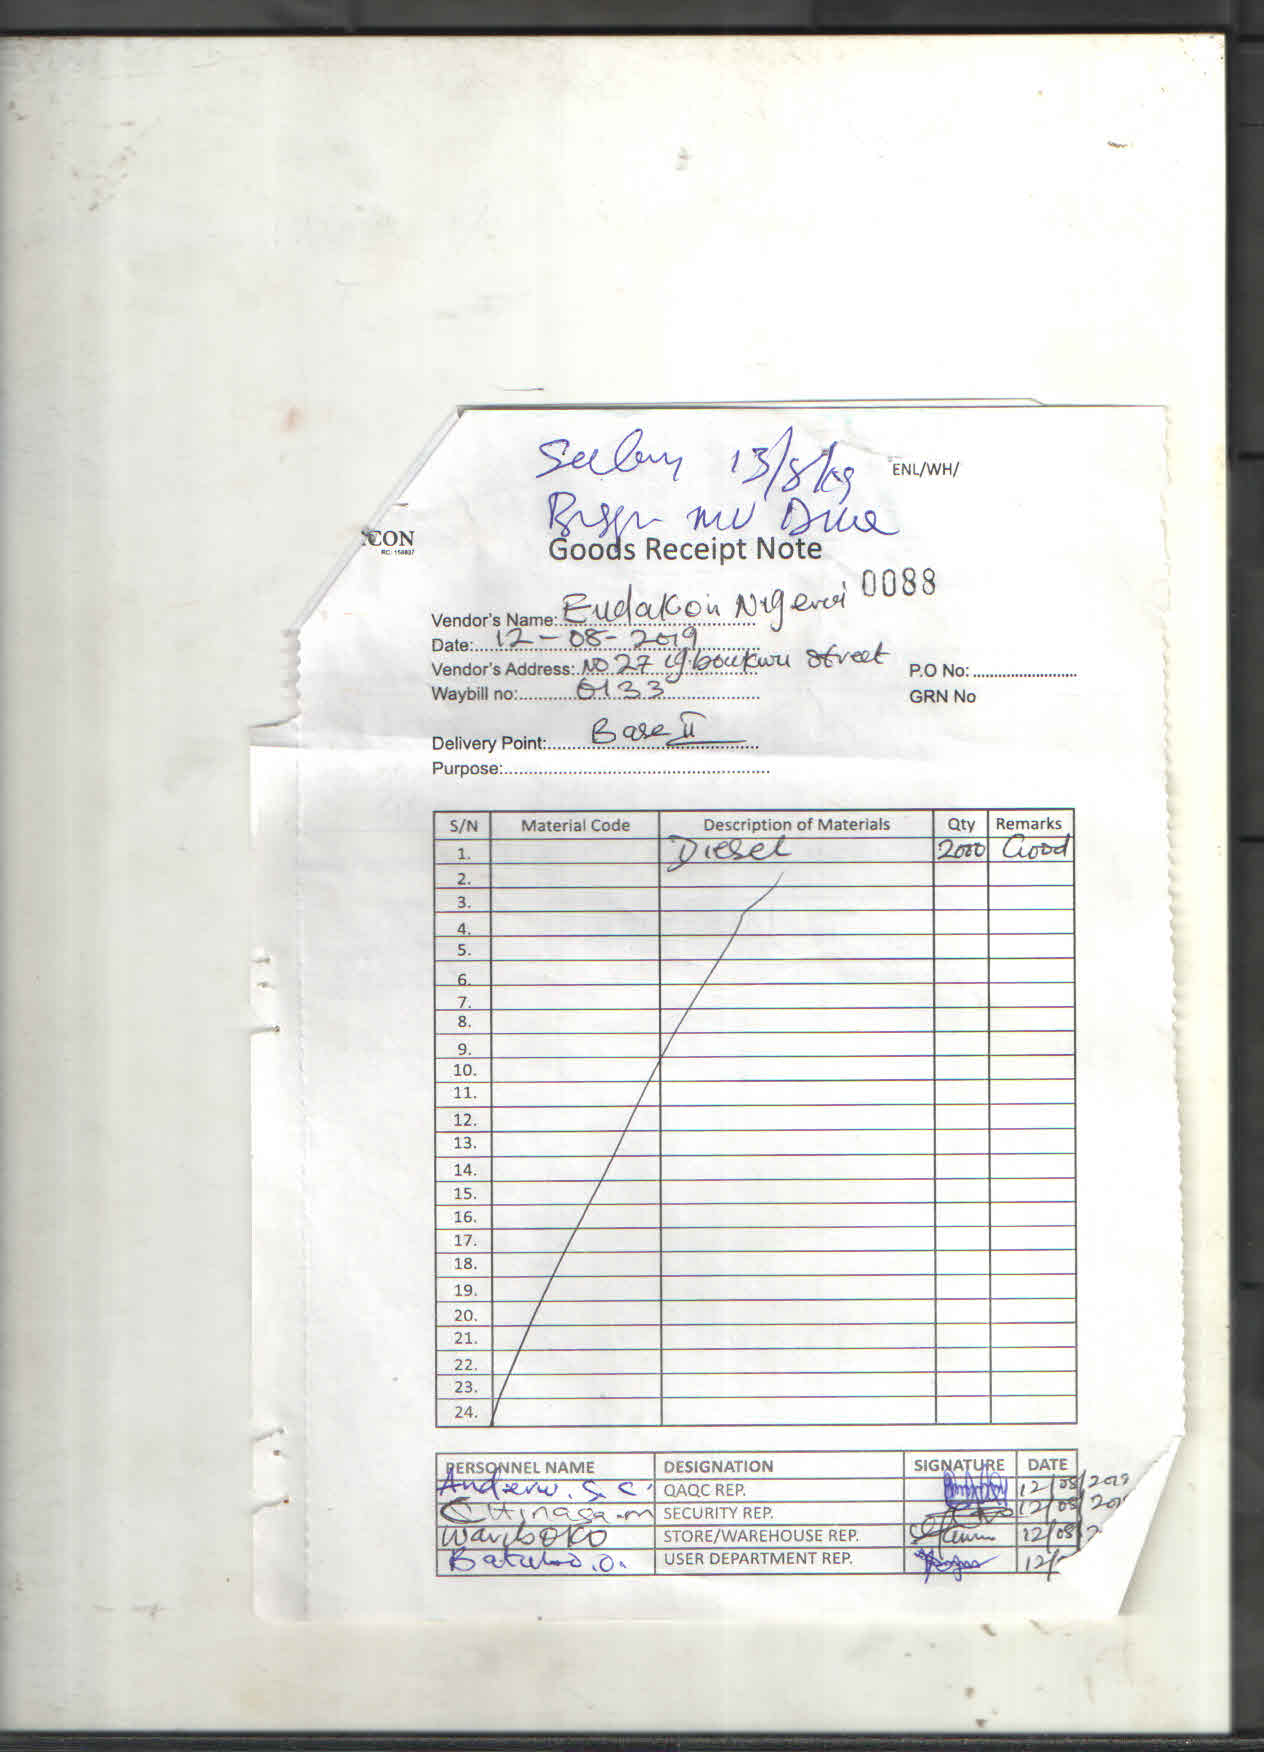 13/8/19
ENL/WH/
CON
RC: 150837
Goods Receipt Note
0088
Vendor's Name: Eudakon Nigeria
Date: 12-08-2019
Vendor's Address: NO 27 igboukwu street
P.O No:
Waybill no: 0133
GRN No
Delivery Point: Base II
Purpose:
S/N Material Code Description of Materials Qty Remarks
1. Diesel 2000 Good
2.
3.
4.
5.
6.
7.
8.
9.
10.
11.
12.
13.
14.
15.
16.
17.
18.
19.
20.
21.
22.
23.
24.
PERSONNEL NAME DESIGNATION SIGNATURE DATE
Andrew. S. C. QAQC REP. 12/08/2019
Chinasa.m SECURITY REP. 12/08/20
Wariboko STORE/WAREHOUSE REP. 12/08/2
O. USER DEPARTMENT REP. 12/